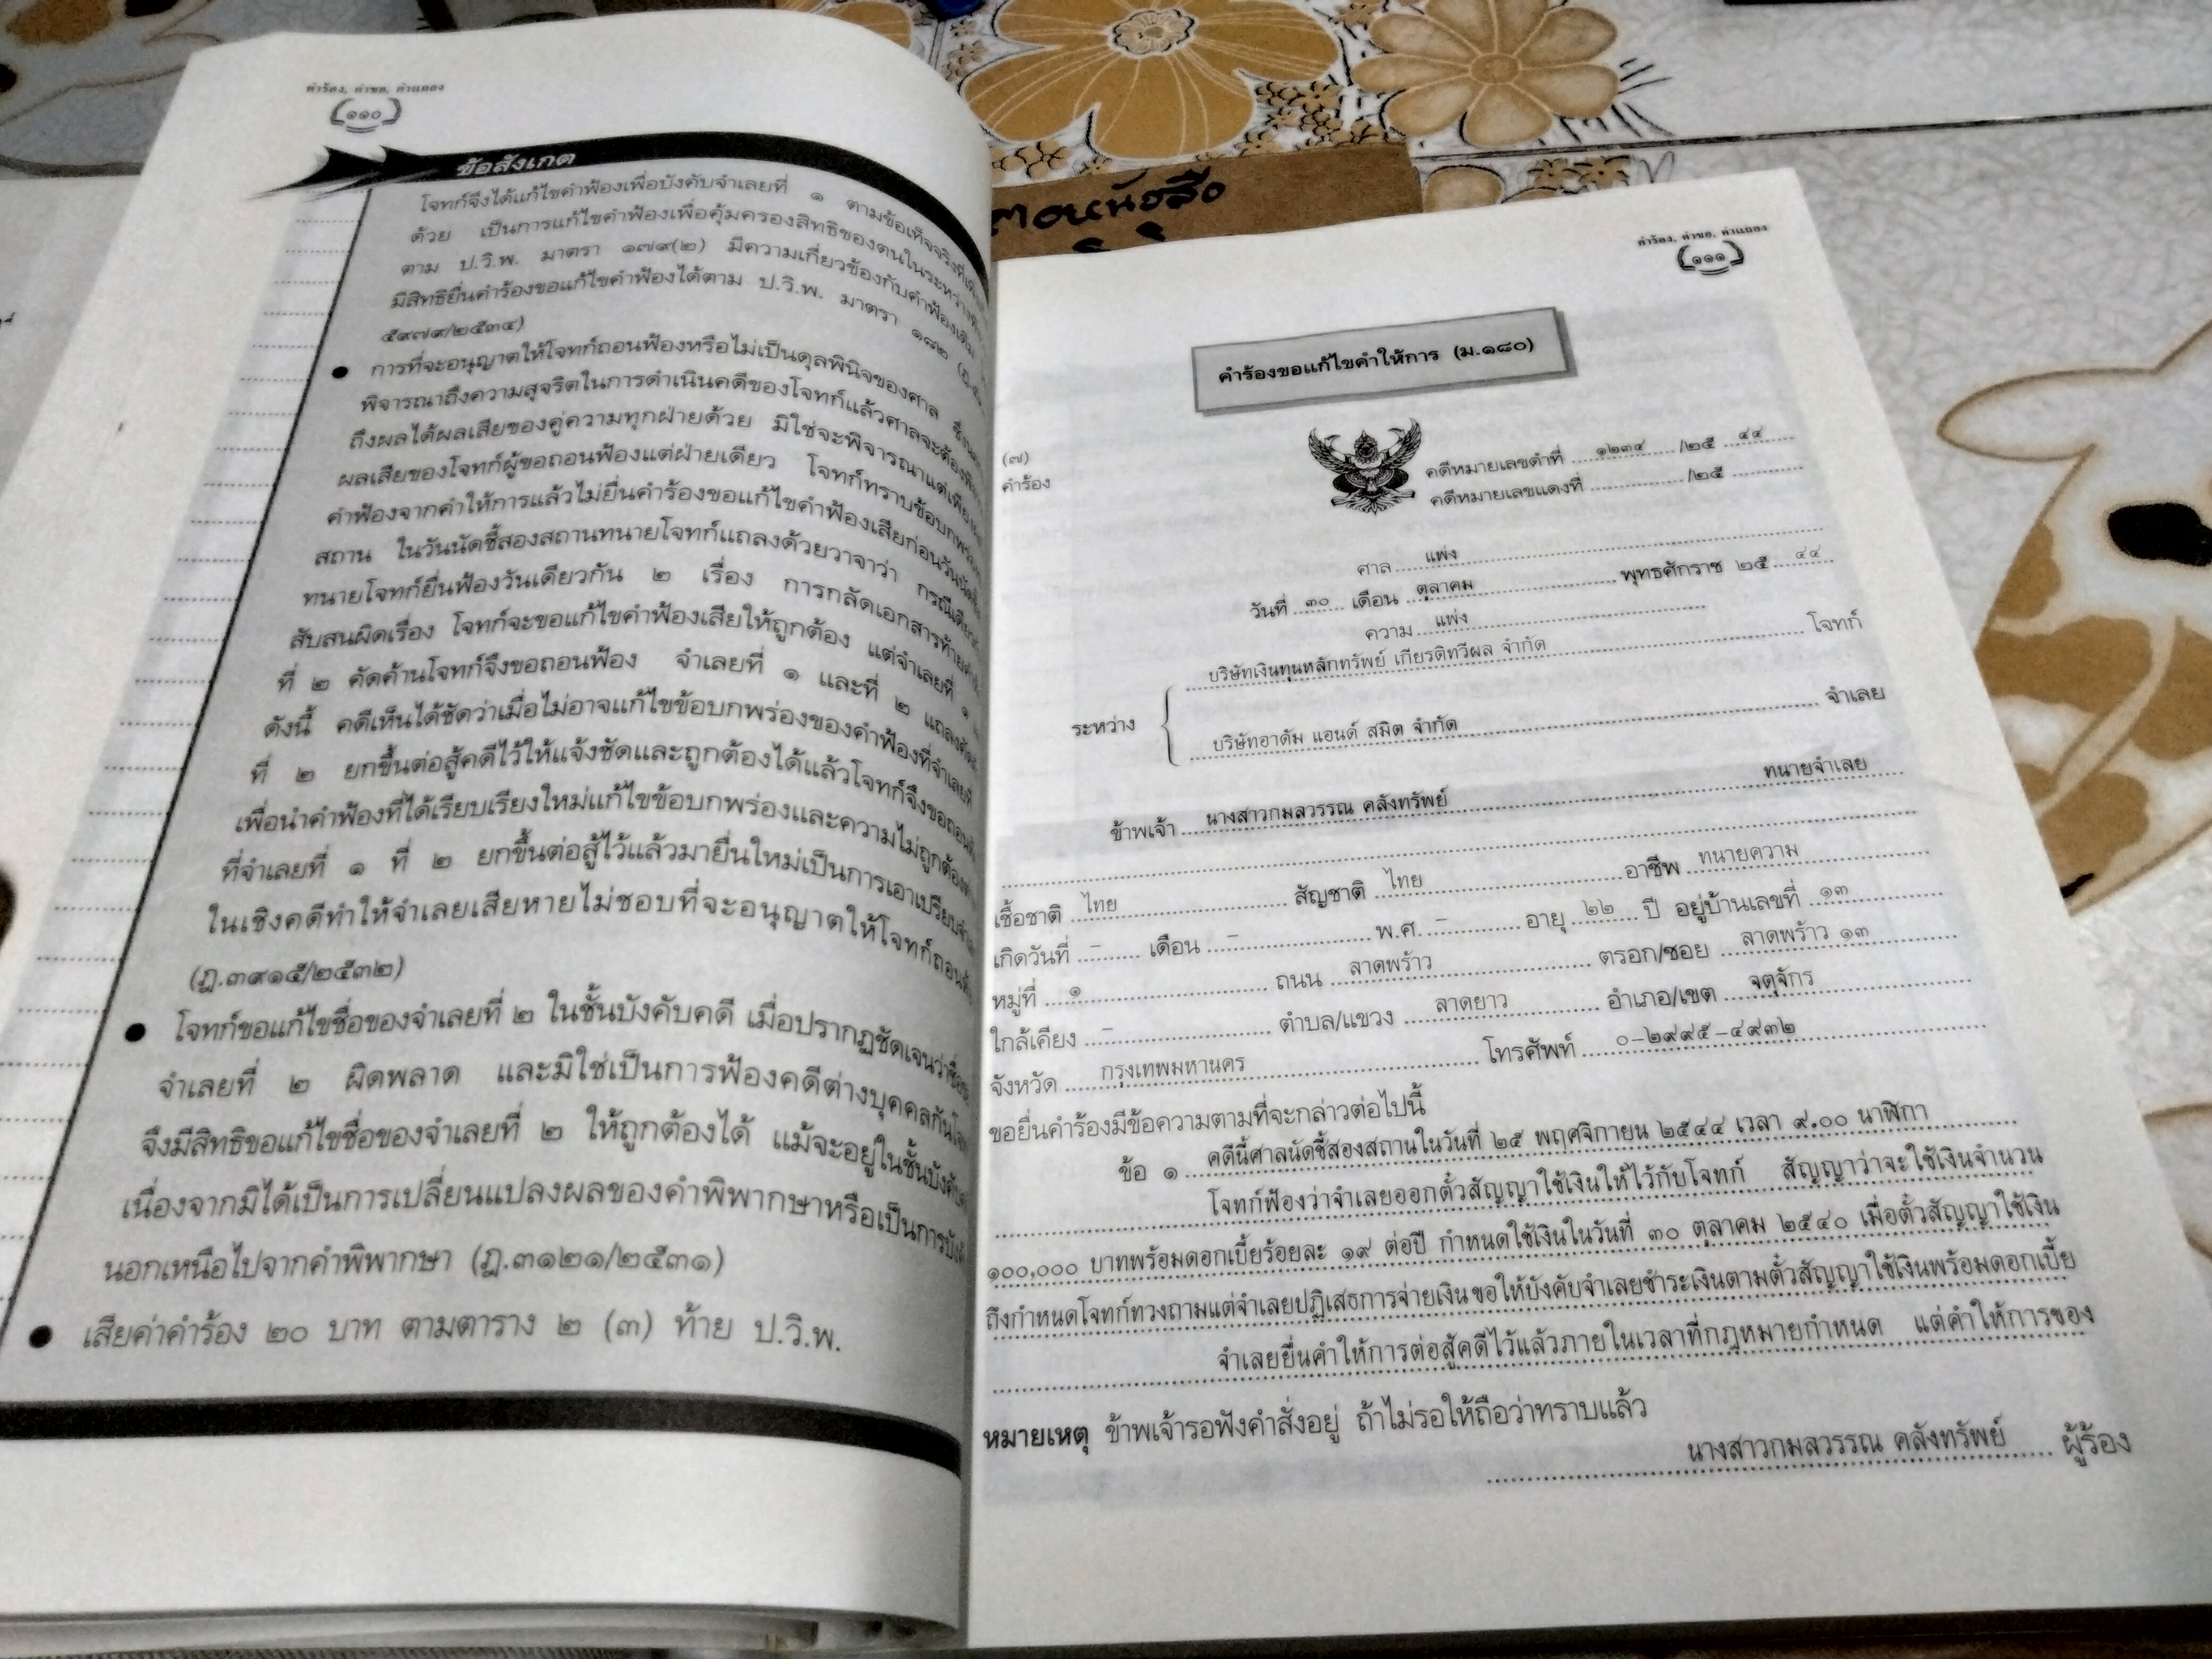 คำร้อง, คำขอ, คำแถลง
๑๑๐
ข้อสังเกต
โจทก์จึงได้แก้ไขคำฟ้องเพื่อบังคับจำเลยที่ ๑ ตามข้อเท็จจริงที่
ด้วย เป็นการแก้ไขคำฟ้องเพื่อคุ้มครองสิทธิของตนในระหว่าง
ตาม ป.วิ.พ. มาตรา ๑๗๙(๒) มีความเกี่ยวข้องกับคำฟ้องเดิม
มีสิทธิยื่นคำร้องขอแก้ไขคำฟ้องได้ตาม ป.วิ.พ. มาตรา ๑๘๒ (ฎ.
๕๙๗๙/๒๕๓๔)
● การที่จะอนุญาตให้โจทก์ถอนฟ้องหรือไม่เป็นดุลพินิจของศาล
พิจารณาถึงความสุจริตในการดำเนินคดีของโจทก์แล้วศาลจะต้อง
ถึงผลได้ผลเสียของคู่ความทุกฝ่ายด้วย มิใช่จะพิจารณาแต่เพียง
ผลเสียของโจทก์ผู้ขอถอนฟ้องแต่ฝ่ายเดียว โจทก์ทราบข้อบกพร่อง
คำฟ้องจากคำให้การแล้วไม่ยื่นคำร้องขอแก้ไขคำฟ้องเสียก่อนวัน
สถาน ในวันนัดชี้สองสถานทนายโจทก์แถลงด้วยวาจาว่า กรณี
ทนายโจทก์ยื่นฟ้องวันเดียวกัน ๒ เรื่อง การกลัดเอกสารท้าย
สับสนผิดเรื่อง โจทก์จะขอแก้ไขคำฟ้องเสียให้ถูกต้อง แต่จำเลยที่ ๑
ที่ ๒ คัดค้านโจทก์จึงขอถอนฟ้อง จำเลยที่ ๑ และที่ ๒ แถลง
ดังนี้ คดีเห็นได้ชัดว่าเมื่อไม่อาจแก้ไขข้อบกพร่องของคำฟ้องที่จำเลยที่
ที่ ๒ ยกขึ้นต่อสู้คดีไว้ให้แจ้งชัดและถูกต้องได้แล้วโจทก์จึงขอถอน
เพื่อนำคำฟ้องที่ได้เรียบเรียงใหม่แก้ไขข้อบกพร่องและความไม่ถูกต้อง
ที่จำเลยที่ ๑ ที่ ๒ ยกขึ้นต่อสู้ไว้แล้วมายื่นใหม่เป็นการเอาเปรียบ
ในเชิงคดีทำให้จำเลยเสียหายไม่ชอบที่จะอนุญาตให้โจทก์ถอน
(ฎ.๓๙๑๕/๒๕๓๒)
● โจทก์ขอแก้ไขชื่อของจำเลยที่ ๒ ในชั้นบังคับคดี เมื่อปรากฏชัดเจนว่า
จำเลยที่ ๒ ผิดพลาด และมิใช่เป็นการฟ้องคดีต่างบุคคลกัน
จึงมีสิทธิขอแก้ไขชื่อของจำเลยที่ ๒ ให้ถูกต้องได้ แม้จะอยู่ในชั้น
เนื่องจากมิได้เป็นการเปลี่ยนแปลงผลของคำพิพากษาหรือเป็นการ
นอกเหนือไปจากคำพิพากษา (ฎ.๓๑๒๑/๒๕๓๑)
● เสียค่าคำร้อง ๒๐ บาท ตามตาราง ๒ (๓) ท้าย ป.วิ.พ.
หนังสือ
คำร้อง, คำขอ, คำแถลง
๑๑๑
คำร้องขอแก้ไขคำให้การ (ม.๑๘๐)
(๗)
คำร้อง
คดีหมายเลขดำที่ ๑๒๓๔ /๒๕ ๔๔
คดีหมายเลขแดงที่ /๒๕
ศาล แพ่ง
วันที่ ๓๐ เดือน ตุลาคม พุทธศักราช ๒๕ ๔๔
ความ แพ่ง
บริษัทเงินทุนหลักทรัพย์ เกียรติทวีผล จำกัด โจทก์
ระหว่าง
บริษัทอาดัม แอนด์ สมิต จำกัด จำเลย
ข้าพเจ้า นางสาวกมลวรรณ คลังทรัพย์ ทนายจำเลย
เชื้อชาติ ไทย สัญชาติ ไทย อาชีพ ทนายความ
เกิดวันที่ – เดือน – พ.ศ. – อายุ ๒๒ ปี อยู่บ้านเลขที่ ๑๓
หมู่ที่ ๑ ถนน ลาดพร้าว ตรอก/ซอย ลาดพร้าว ๑๓
ใกล้เคียง – ตำบล/แขวง ลาดยาว อำเภอ/เขต จตุจักร
จังหวัด กรุงเทพมหานคร โทรศัพท์ ๐-๒๙๙๕-๔๙๓๒
ขอยื่นคำร้องมีข้อความตามที่จะกล่าวต่อไปนี้
ข้อ ๑ คดีนี้ศาลนัดชี้สองสถานในวันที่ ๒๕ พฤศจิกายน ๒๕๔๔ เวลา ๙.๐๐ นาฬิกา
โจทก์ฟ้องว่าจำเลยออกตั๋วสัญญาใช้เงินให้ไว้กับโจทก์ สัญญาว่าจะใช้เงินจำนวน
๑๐๐,๐๐๐ บาทพร้อมดอกเบี้ยร้อยละ ๑๙ ต่อปี กำหนดใช้เงินในวันที่ ๓๐ ตุลาคม ๒๕๔๐ เมื่อตั๋วสัญญาใช้เงิน
ถึงกำหนดโจทก์ทวงถามแต่จำเลยปฏิเสธการจ่ายเงิน ขอให้บังคับจำเลยชำระเงินตามตั๋วสัญญาใช้เงินพร้อมดอกเบี้ย
จำเลยยื่นคำให้การต่อสู้คดีไว้แล้วภายในเวลาที่กฎหมายกำหนด แต่คำให้การของ
หมายเหตุ ข้าพเจ้ารอฟังคำสั่งอยู่ ถ้าไม่รอให้ถือว่าทราบแล้ว
นางสาวกมลวรรณ คลังทรัพย์ ผู้ร้อง